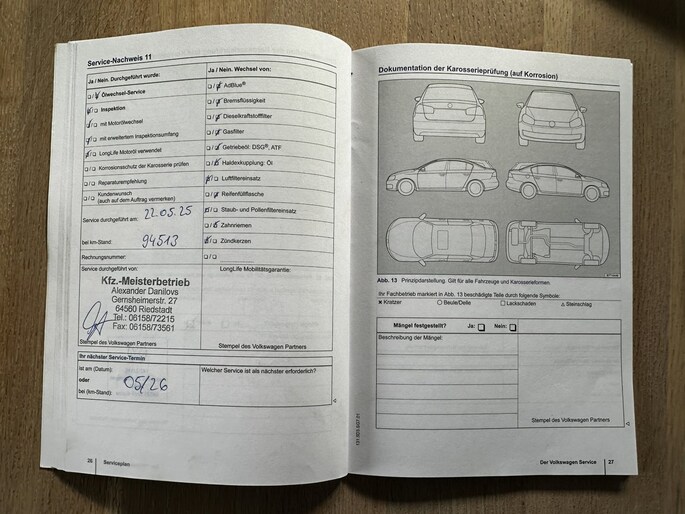 Service-Nachweis 11
Ja / Nein. Durchgeführt wurde:
Ölwechsel-Service
Inspektion
mit Motorölwechsel
mit erweitertem Inspektionsumfang
LongLife Motoröl verwendet
Korrosionsschutz der Karosserie prüfen
Reparaturempfehlung
Kundenwunsch
(auch auf dem Auftrag vermerken)
Service durchgeführt am: 22.05.25
bei km-Stand: 94513
Rechnungsnummer:
Service durchgeführt von:
Kfz.-Meisterbetrieb
Alexander Danilovs
Gernsheimerstr. 27
64560 Riedstadt
Tel.: 06158/72215
Fax: 06158/73561
Stempel des Volkswagen Partners
Ihr nächster Service-Termin
ist am (Datum):
oder 05/26
bei (km-Stand):
Ja / Nein. Wechsel von:
AdBlue®
Bremsflüssigkeit
Dieselkraftstofffilter
Gasfilter
Getriebeöl: DSG®, ATF
Haldexkupplung: Öl
Luftfiltereinsatz
Reifenfüllflasche
Staub- und Pollenfiltereinsatz
Zahnriemen
Zündkerzen
LongLife Mobilitätsgarantie:
Stempel des Volkswagen Partners
Welcher Service ist als nächster erforderlich?
26 Serviceplan
Dokumentation der Karosserieprüfung (auf Korrosion)
Abb. 13 Prinzipdarstellung. Gilt für alle Fahrzeuge und Karosserieformen.
Ihr Fachbetrieb markiert in Abb. 13 beschädigte Teile durch folgende Symbole:
Kratzer Beule/Delle Lackschaden Steinschlag
Mängel festgestellt? Ja: Nein:
Beschreibung der Mängel:
Stempel des Volkswagen Partners
Der Volkswagen Service 27